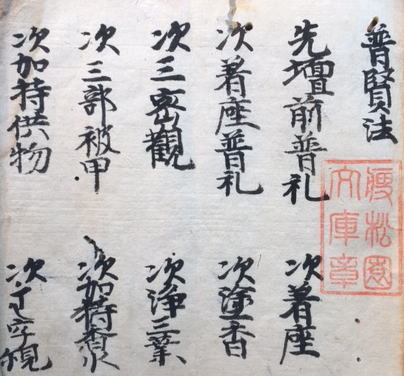 普賢法
先壇前普礼　次著座
次著座普礼　次塗香
次三密觀　次浄三業
次三部被甲　次加持香水
次加持供物　次字観
松園
文庫章